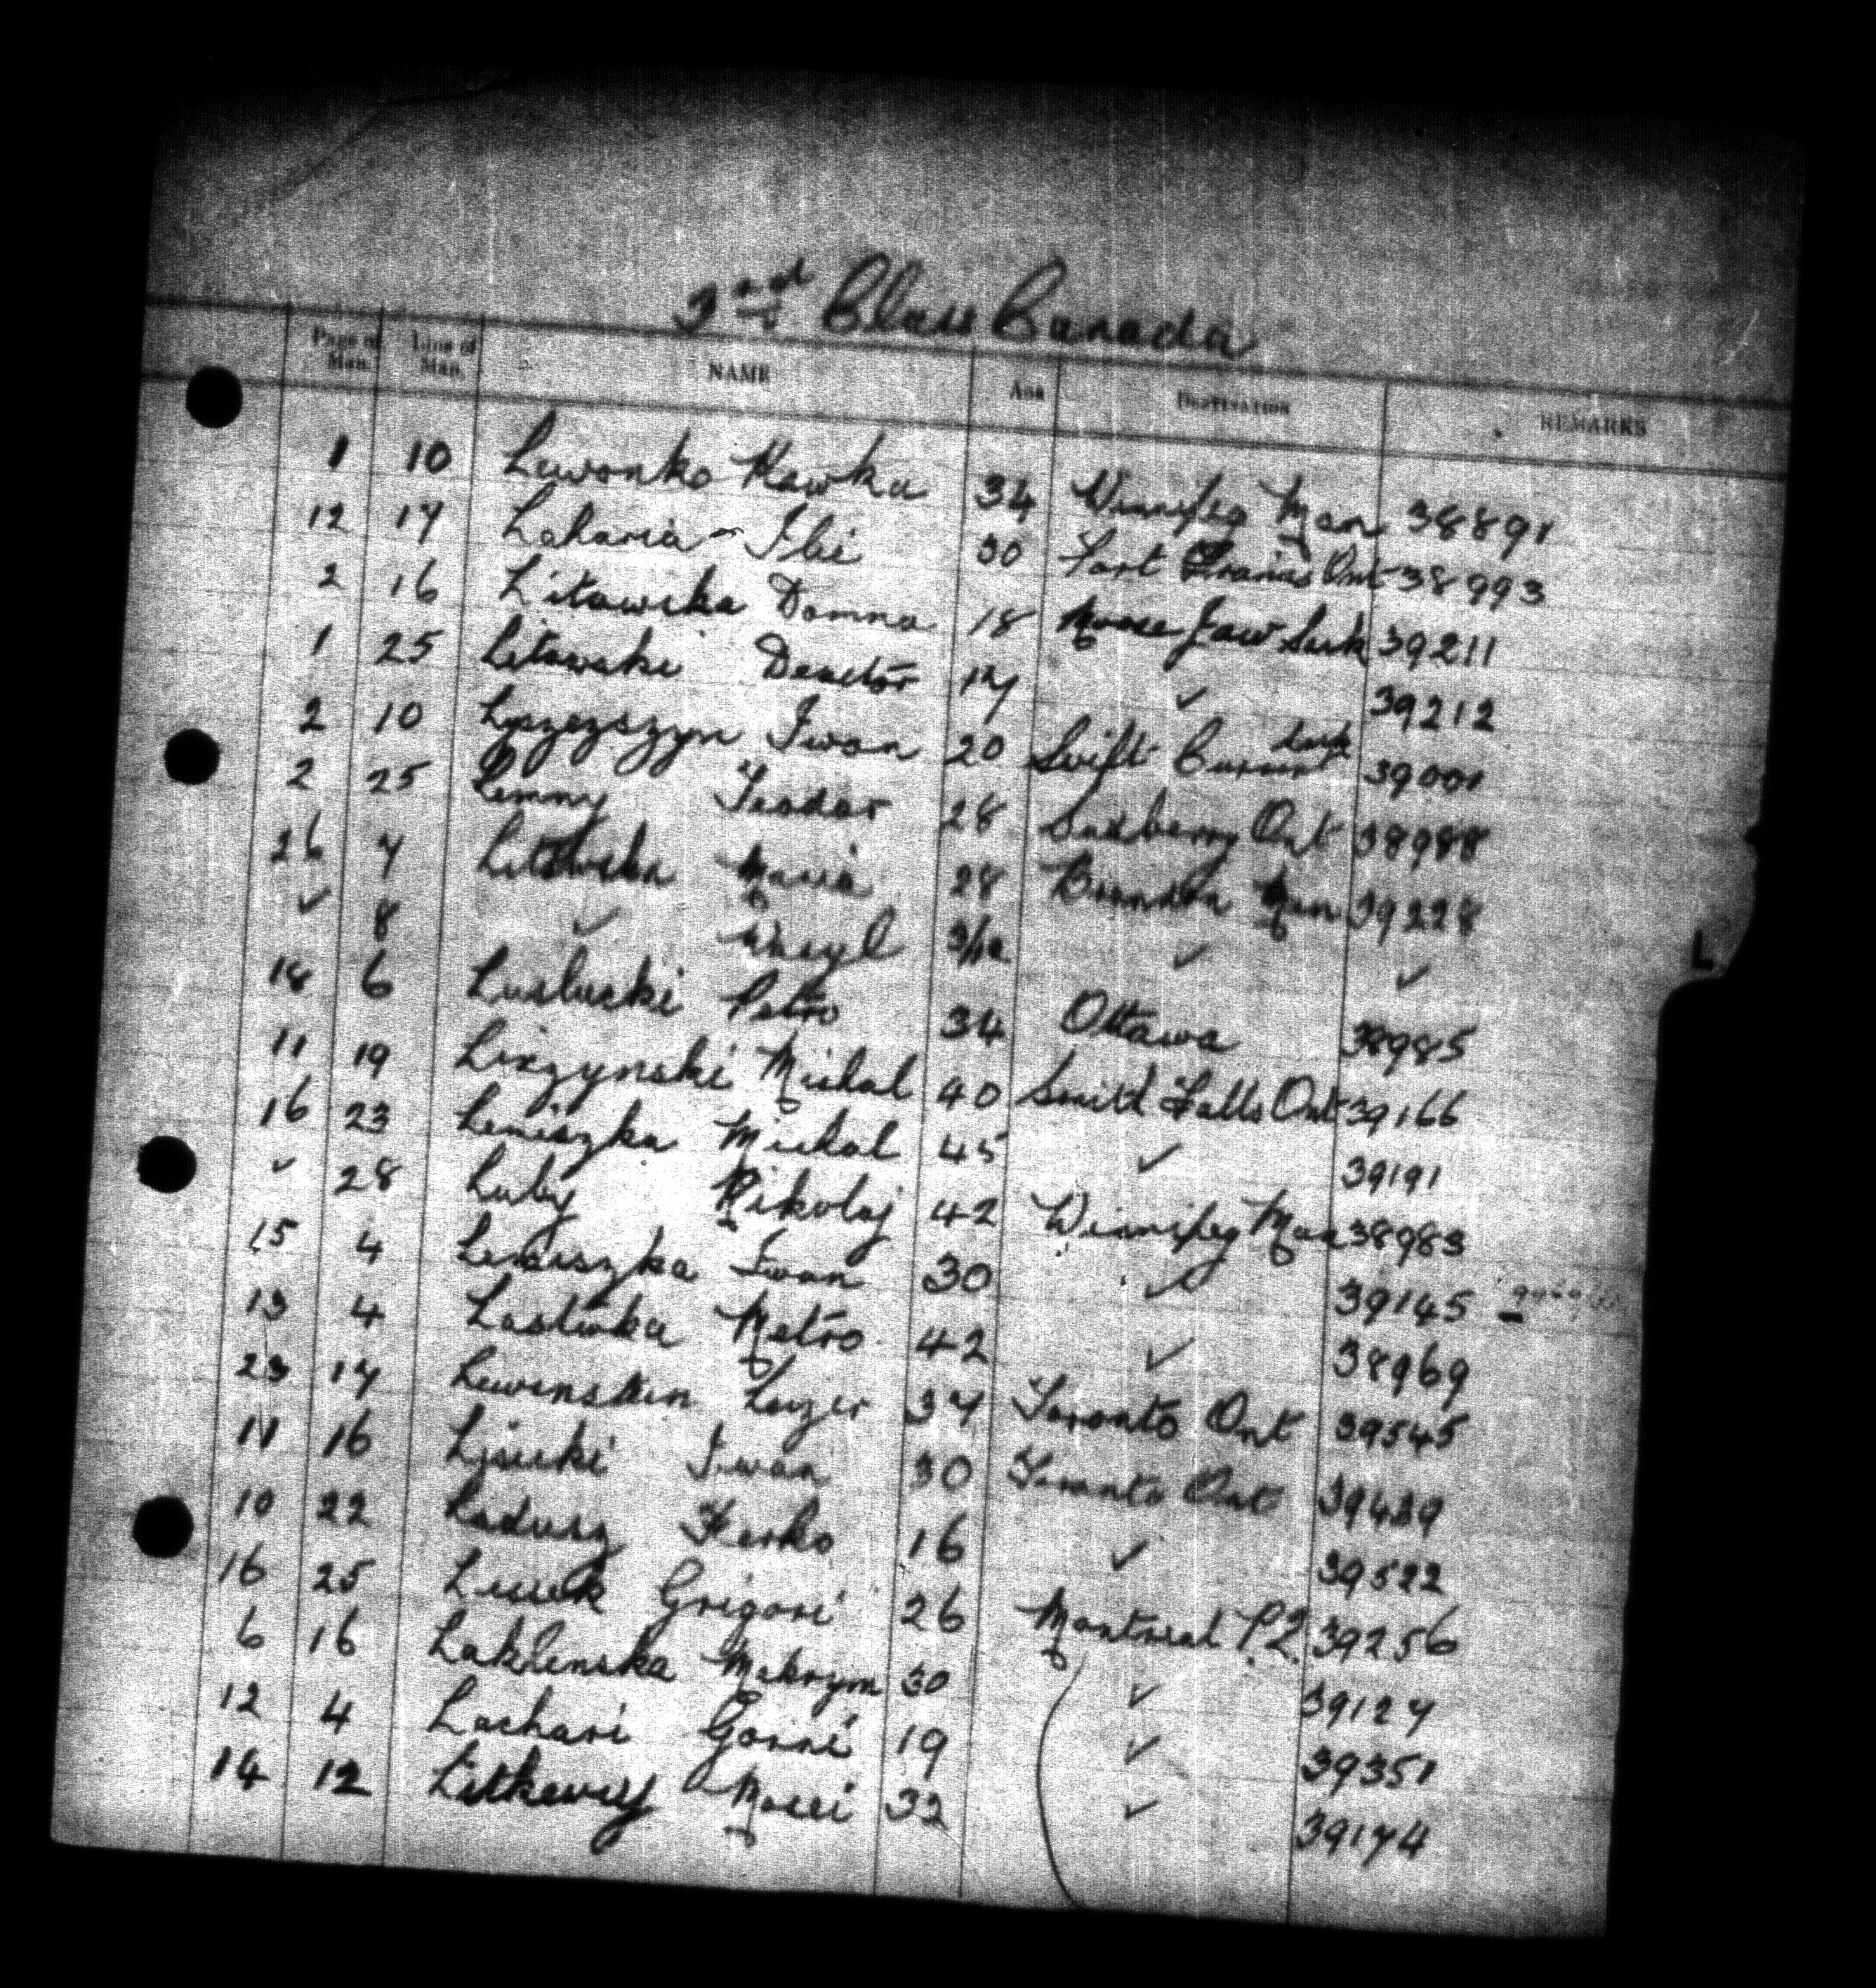 3rd Class Canada
Page of Man. Line of Man. NAME Age Destination REMARKS
1 10 Lewonko Hawka 34 Winnipeg Man 38891
12 17 Laharia Ilie 30 Fort Francis Ont 38993
2 16 Litawska Domna 18 Moose Jaw Sask 39211
1 25 Litowski 17 ✓ 39212
2 10 Lyszczszyn Iwan 20 Swift Current Sask 39001
2 25 Lenny Teodor 28 Sudberry Ont 38988
26 7 Litowska Maria 28 Brandon Man 39228
✓ 8 ✓ Wasyl 3/12 ✓ ✓
18 6 Petro 34 Ottawa 38985
11 19 Liszynski Michal 40 Smith Falls Ont 39166
16 23 Leniszka Michal 45 ✓ 39191
✓ 28 Luby Nikolaj 42 Winnipeg Man 38983
15 4 Leniszka Iwan 30 ✓ 39145
13 4 Lastwka Metro 42 ✓ 38969
23 17 Lewinstein Layzer 34 Toronto Ont 39545
11 16 Lisucki Iwan 30 Toronto Ont 39439
10 22 Ladusz Ferko 16 ✓ 39522
16 25 Grigori 26 Montreal P.Q. 39256
6 16 Laklenska Mekrym 30 ✓ 39127
12 4 Lachari Gorni 19 ✓ 39351
14 12 Litkewicz Mocei 32 ✓ 39174
L